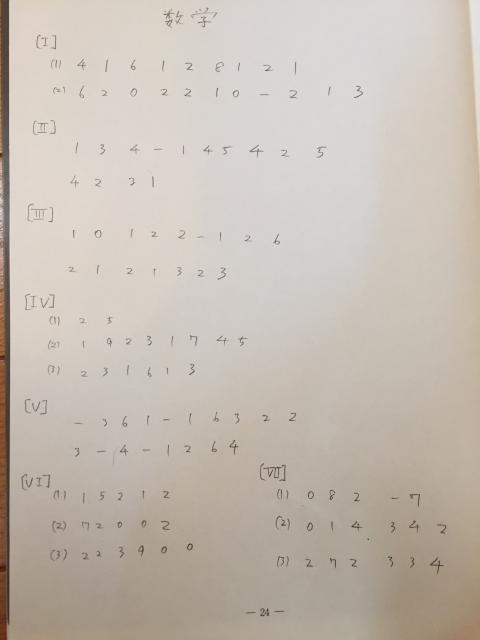 数学
[I]
(1) 4 1 6 1 2 8 1 2 1
(2) 6 2 0 2 2 1 0 - 2 1 3
[II]
1 3 4 - 1 4 5 4 2 5
4 2 3 1
[III]
1 0 1 2 2 - 1 2 6
2 1 2 1 3 2 3
[IV]
(1) 2 5
(2) 1 9 2 3 1 7 4 5
(3) 2 3 1 6 1 3
[V]
- 3 6 1 - 1 6 3 2 2
3 - 4 - 1 2 6 4
[VI]
(1) 1 5 2 1 2
(2) 7 2 0 0 2
(3) 2 2 3 9 0 0
[VII]
(1) 0 8 2 - 7
(2) 0 1 4 3 4 2
(3) 2 7 2 3 3 4
- 24 -